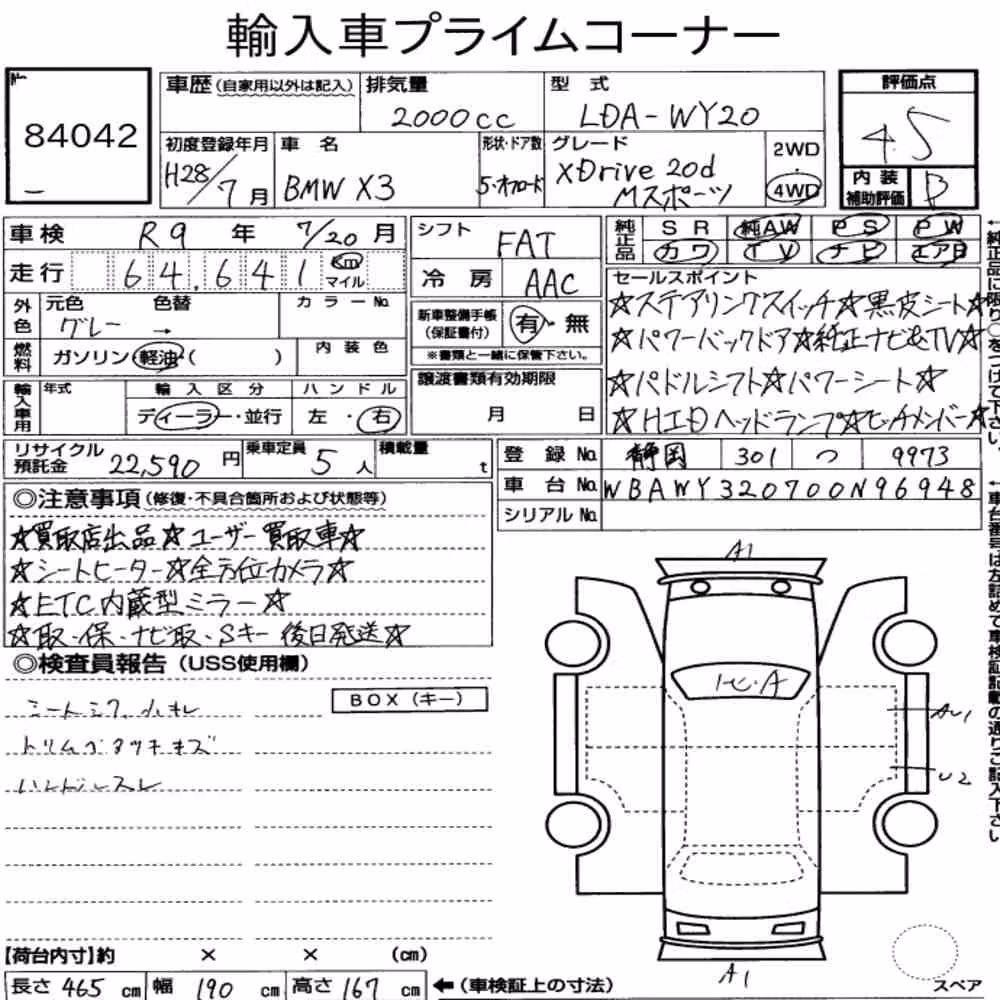 輸入車プライムコーナー
84042
車歴(自家用以外は記入) 排気量 2000cc 型式 LDA-WY20
評価点 4.5
初度登録年月 H28/7月 車名 BMW X3 形状・ドア数 5・オフロード グレード xDrive 20d Mスポーツ 2WD 4WD
内装補助評価 B
車検 R9年 7/20月
走行 64,641 Km マイル
シフト FAT
冷房 AAC
純正品 SR 純AW PS PW
カワ TV ナビ エアB
外色 元色 グレー 色替 → カラーNo.
燃料 ガソリン・軽油・( ) 内装色
新車整備手帳(保証書付) 有・無
※書類と一緒に保管下さい。
セールスポイント
☆ステアリングスイッチ☆黒皮シート☆
☆パワーバックドア☆純正ナビ&TV☆
☆パドルシフト☆パワーシート☆
☆HIDヘッドランプ☆
輸入車用 年式 輸入区分 ディーラー・並行 ハンドル 左・右
譲渡書類有効期限 月 日
リサイクル預託金 22,590円 乗車定員 5人 積載量 t
登録No. 静岡 301 つ 9973
車台No. WBAWY320700N96948
シリアルNo.
◎注意事項(修復・不具合箇所および状態等)
☆買取店出品☆ユーザー買取車☆
☆シートヒーター☆全方位カメラ☆
☆ETC内蔵型ミラー☆
☆取・保・ナビ取・Sキー 後日発送☆
◎検査員報告(USS使用欄)
BOX(キー)
ハンドルスレ
A1
U2
A1
【荷台内寸】約 × × (cm)
長さ 465 cm 幅 190 cm 高さ 167 cm ←(車検証上の寸法)
スペア
↑純正品に限り○をつけて下さい。
↑車台番号は左詰めで車検証記載の通りご記入下さい